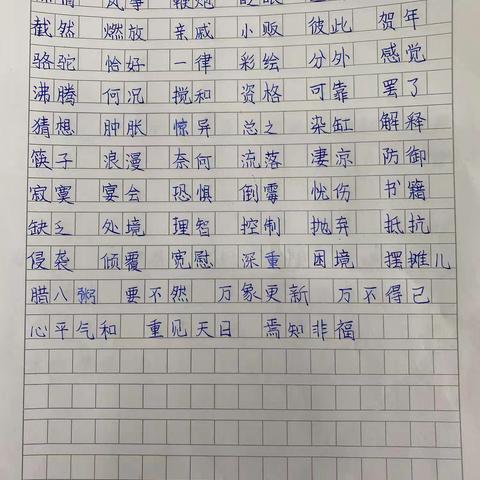 截然 燃放 亲戚 小贩 彼此 贺年
骆驼 恰好 一律 彩绘 分外 感觉
沸腾 何况 搅和 资格 可靠 罢了
猜想 肿胀 惊异 总之 染缸 解释
筷子 浪漫 奈何 流落 凄凉 防御
寂寞 宴会 恐惧 倒霉 忧伤 书籍
缺乏 处境 理智 控制 抛弃 抵抗
侵袭 倾覆 宽慰 深重 困境 摆摊儿
腊八粥 要不然 万象更新 万不得已
心平气和 重见天日 焉知非福